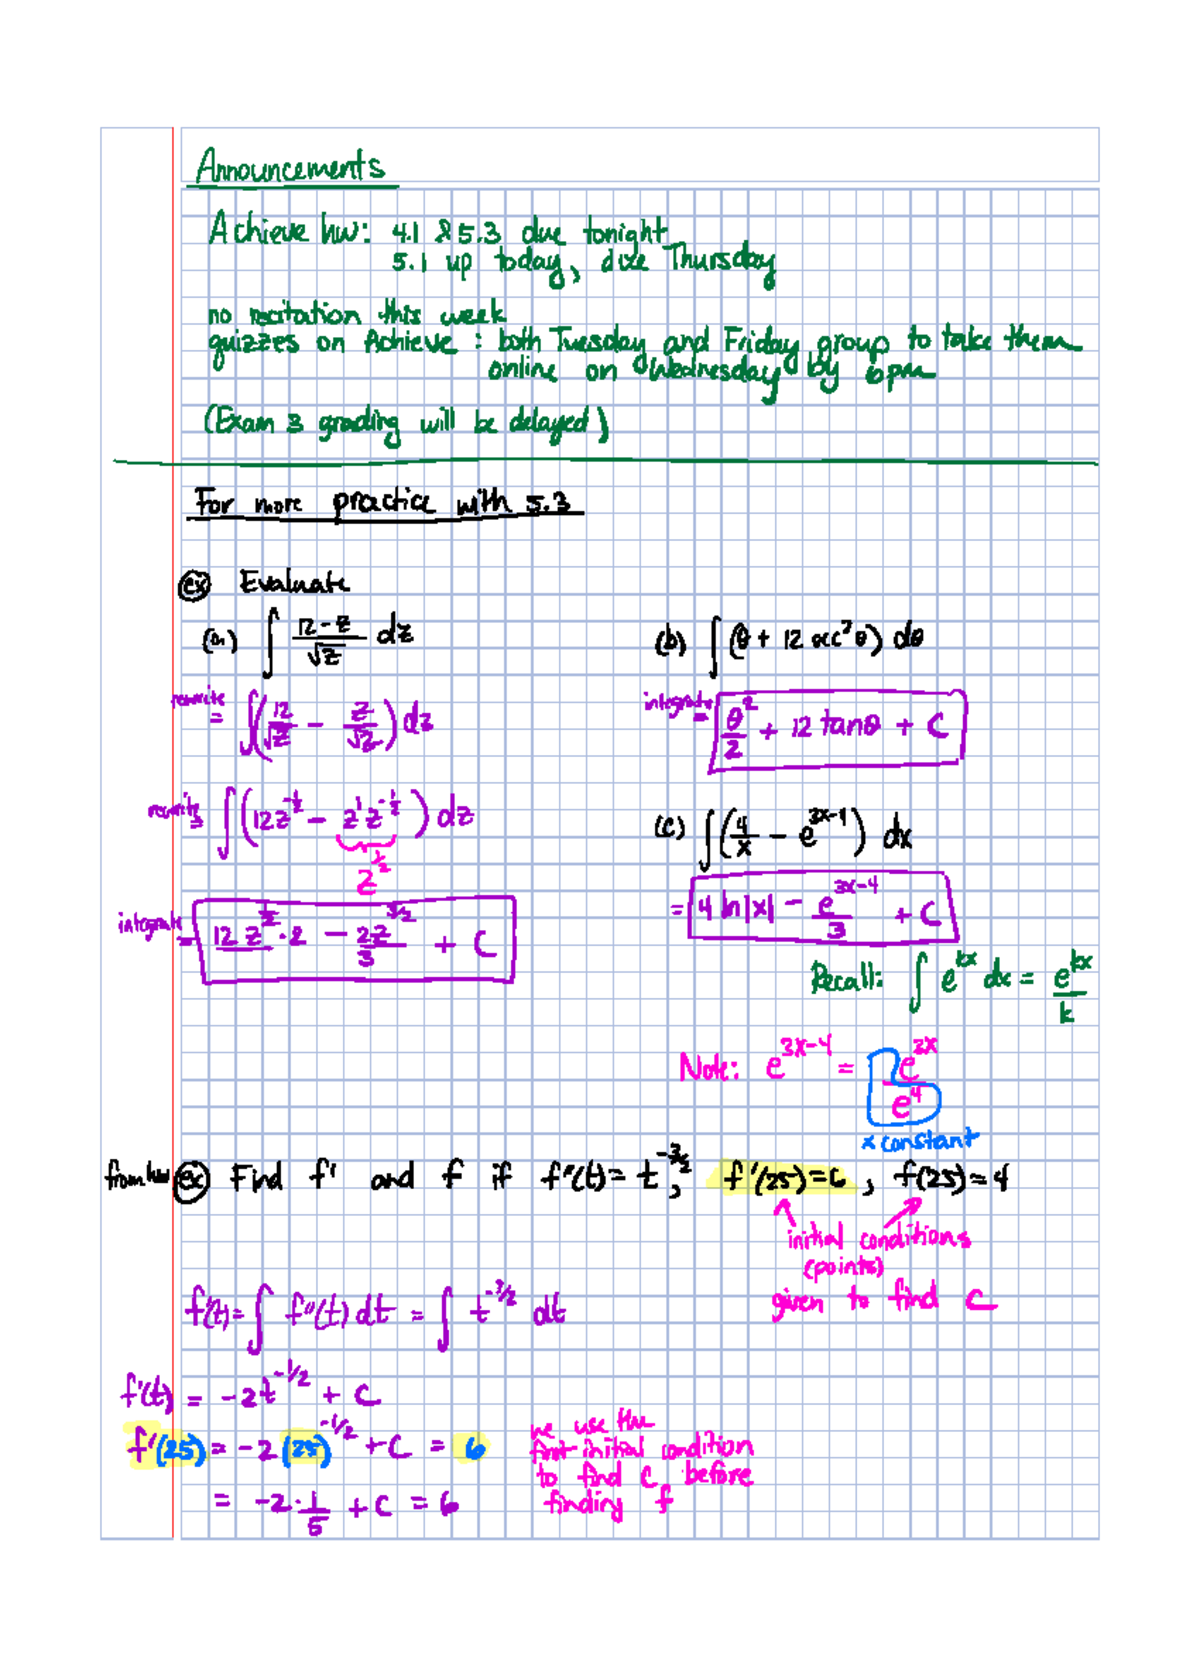 Announcements
Achieve hw: 4.1 & 5.3 due tonight
5.1 up today, due Thursday
no recitation this week
quizzes on Achieve : both Tuesday and Friday group to take them
online on Wednesday by 6pm
(Exam 3 grading will be delayed)
For more practice with 5.3
ex Evaluate
(a) ∫ (12-z)/√z dz
rewrite = ∫(12/√z - z/√z) dz
rewrite = ∫(12z^(-1/2) - z^1 z^(-1/2)) dz
z^(1/2)
integrate = 12z^(1/2)·2 - 2z^(3/2)/3 + C
(b) ∫(θ + 12 sec²θ) dθ
integrate = θ²/2 + 12 tanθ + C
(c) ∫(4/x - e^(3x-4)) dx
= 4 ln|x| - e^(3x-4)/3 + C
Recall: ∫ e^(kx) dx = e^(kx)/k
Note: e^(3x-4) = e^(3x)/e^4
x constant
from hw ex Find f' and f if f"(t) = t^(-3/2), f'(25)=6, f(25)=4
initial conditions
(points)
given to find C
f'(t) = ∫ f"(t) dt = ∫ t^(-3/2) dt
f'(t) = -2t^(-1/2) + C
f'(25) = -2(25)^(-1/2) + C = 6
= -2·1/5 + C = 6
we use the
first initial condition
to find C before
finding f